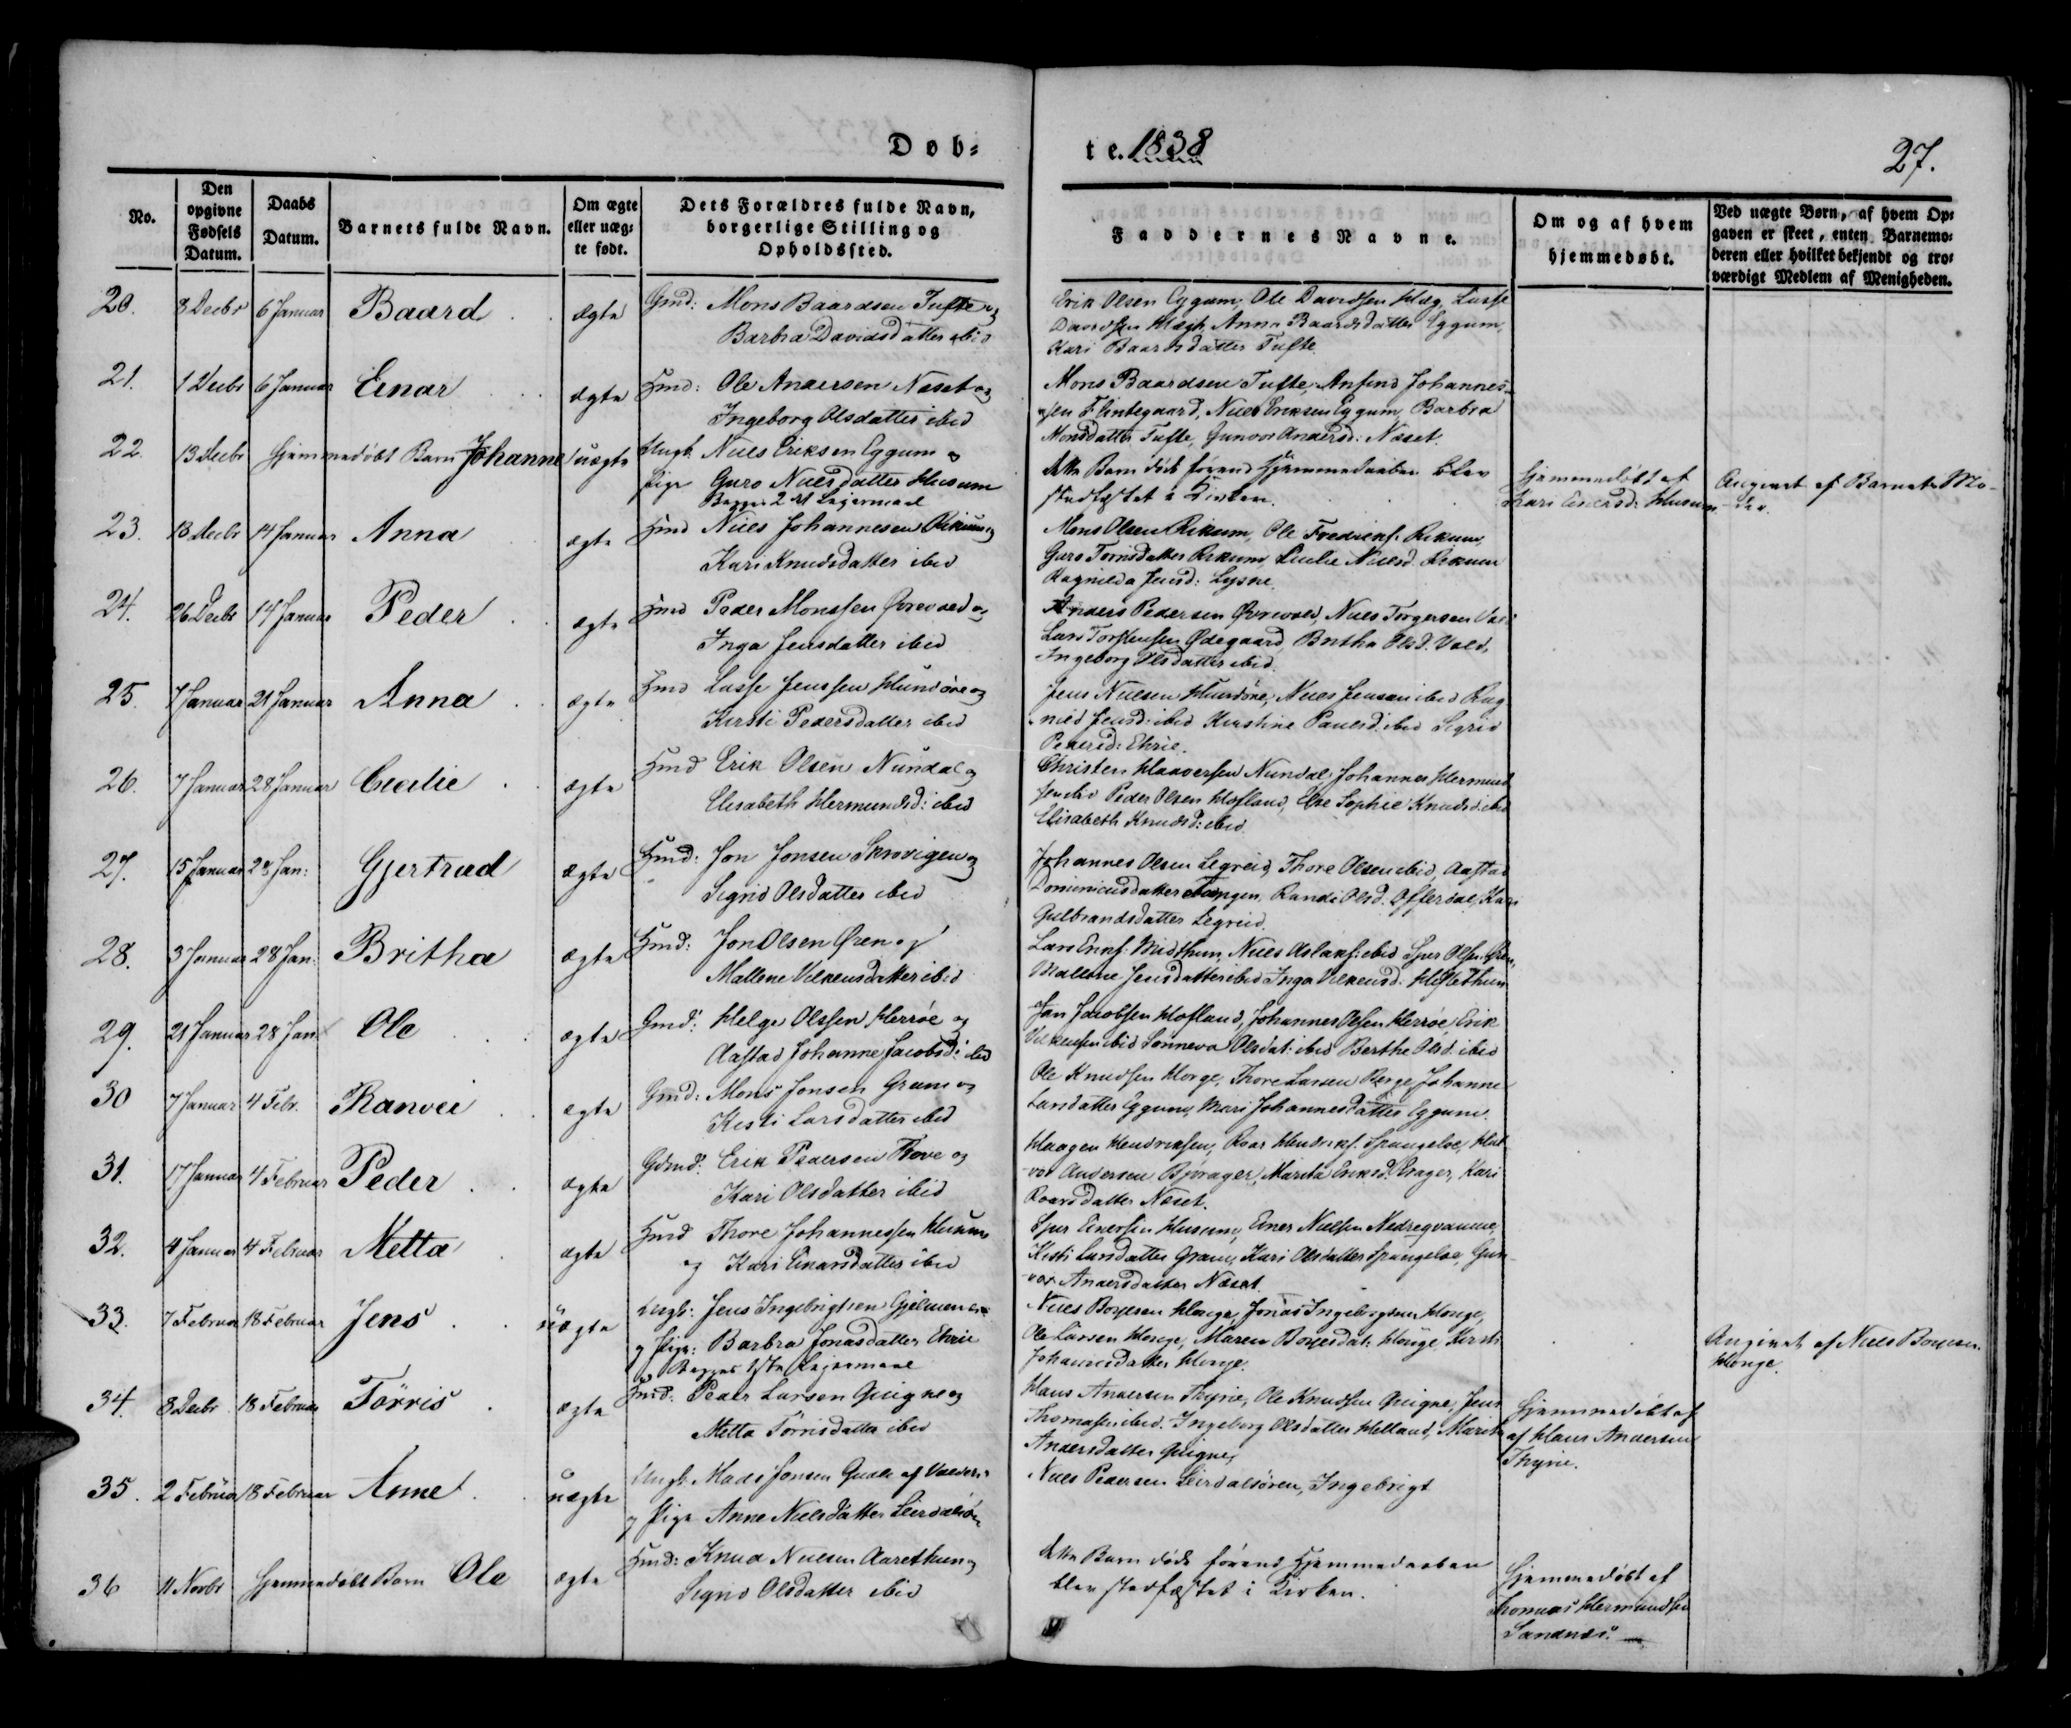 Døb-
te. 1838
27.
No.
Den opgivne Fødsels Datum.
Daabs Datum.
Barnets fulde Navn.
Om ægte eller uægte født.
Dets Forældres fulde Navn, borgerlige Stilling og Opholdssted.
Faddernes Navne.
Om og af hvem hjemmedøbt.
Ved uægte Børn, af hvem Opgaven er skeet, enten Barnemoderen eller hvilket bekjendt og troværdigt Medlem af Menigheden.
20. 8 Decbr 6 Januar Baard ægte Gmd: Mons Baardsen Tufte og
Barbra Davidsdatter ibid
Erik Olsen Eggum, Ole Davidsen Hæg, Lasse
Davidsen Hægh, Anna Baardsdatter Eggum,
Kari Baardsdatter Tufte.
21. 1 Decbr 6 Januar Einar ægte Hmd: Ole Andersen Næset og
Ingeborg Olsdatter ibid
Mons Baardsen Tufte, Ansend Johannes-
sen Flintegaard, Niels Eriksen Eggum, Barbra
Monsdatter Tufte, Gunvor Andersd: Næset.
22. 13 Decbr Hjemmedøbt Barn Johanne uægte Ungk. Niels Eriksen Eggum og
Pige Guro Nielsdatter Husum
Begges 2det Leiermaal
dette Barn døde førend Hjemmedaaben blev
stadfæstet i Kirken.
Hjemmedøbt af
Kari Einersd: Husum
Angivet af Barnets Mo-
der.
23. 13 Decbr 14 Januar Anna ægte Hmd Niels Johannesen Rikum og
Kari Knudsdatter ibid
Mons Olsen Rikum, Ole Frederiks. Rikum,
Guro Tørrisdatter Rikum, Cicilie Nielsd. Rikum
Ragnilda Jensd: Lysne.
24. 26 Decbr 14 Januar Peder ægte Hmd Peder Monssen Øvrevold og
Inga Jensdatter ibid
Anders Pedersen Øvrevold, Niels Torgersen
Lars Torstensen Ødegaard, Britha Olsd. Vold,
Ingeborg Olsdatter ibid.
25. 7 Januar 21 Januar Anna ægte Hmd Lasse Jenssen Hundøre og
Kirsti Pedersdatter ibid
Jens Nielsen Hundøre, Niels Jensen ibid Rag
nild Jensd: ibid Kirstine Paulsd. ibid Sigrid
Pedersd: Ehrie.
26. 7 Januar 28 Januar Cecilie ægte Hmd Erik Olsen Nundal og
Elisabeth Hermundsd: ibid
Christen Haavorsen Nundal, Johannes Hermund
sen ibid Peder Olsen Hofland, Else Sophie Knudsd: ibid
Elisabeth Knudsd: ibid.
27. 15 Januar 28 Jan: Gjertrud ægte Hmd: Jon Jonsen Skrovigen og
Sigrid Olsdatter ibid
Johannes Olsen Legreid, Thore Olsen ibid, Aastad
Dominicusdatter Tangen, Randi Olsd. Offerdal, Kari
Gulbrandsdatter Legreid.
28. 3 Januar 28 Jan: Britha ægte Hmd: Jon Olsen Øren og
Mallene Vilkensdatter ibid
Lars Eriks: Midthun, Niels Aslaks: ibid Sjur Olsen Øren,
Mallene Jensdatter ibid Inga Vilkensd: Heftethun
29. 21 Januar 28 Jan Ole ægte Gmd: Helge Olssen Herrøe og
Aastad Johanne Jacobsd: ibid
Jan Jacobsen Hofland, Johannes Olsen Herrøe, Erik
Vilkensen ibid Sønneva Olsdat: ibid Berthe Olsd. ibid
30 7 Januar 4 Febr. Ranvei ægte Gmd: Mons Jonsen Gram og
Kisti Larsdatter ibid
Ole Knudsen Horge, Thore Larsen Berge, Johanne
Larsdatter Eggum, Mari Johannesdatter Eggum.
31. 17 Januar 4 Februar Peder ægte Gdmd: Erik Pedersen Tove og
Kari Olsdatter ibid
Haagen Hendriksen, Roar Hendriks. Spangeloe, Hal
vor Andersen Bjørager, Marita Eriksd: Prager, Kari
Roarsdatter Næset.
32. 4 Januar 4 Februar Metta ægte Hmd Thore Johannessen Husum
og Kari Einarsdatter ibid
Sjur Einersen Husum, Einer Nielsen Nedreqvamme,
Kisti Larsdatter Gram, Kari Olsdatter Spangeloe, Gun-
vor Andersdatter Næset.
33. 7 Februar 18 Februar Jens uægte Ungk: Jens Ingebrigtsen
og Pige: Barbra Jonasdatter Ehrie
Begges 1ste Leiermaal
Niels Boyesen Houge, Jonas Ingebrigtsen Houge,
Ole Larsen Houge, Maren Boyesdat: Houge Kirsti
Johannesdatter Houge.
Angivet af Niels Boyesen
Houge.
34. 8 Decbr 18 Februar Tørris ægte Hmd: Peder Larsen Qvigne og
Metta Tørrisdatter ibid
Hans Andersen Thyrie, Ole Knudsen Qvigne, Jens
Thomasen ibid. Ingeborg Olsdatter Helland, Marita
Andersdatter Qvigne,
Hjemmedøbt af
af Hans Andersen
Thyrie.
35. 2 Februar 18 Februar Anne uægte Ungk. Mads Jonsen af Valders
og Pige Anne Nielsdatter Leirdalsør
Niels Pedersen Leirdalsøren, Ingebrigt
36 11 Novbr Hjemmedøbt Barn Ole ægte Hmd: Knud Nielsen Aarethun og
Sigrid Olsdatter ibid
dette Barn døde førend Hjemmedaaben
blev stadfæstet i Kirken.
Hjemmedøbt af
Thomas Hermundsen
Sandnæs.